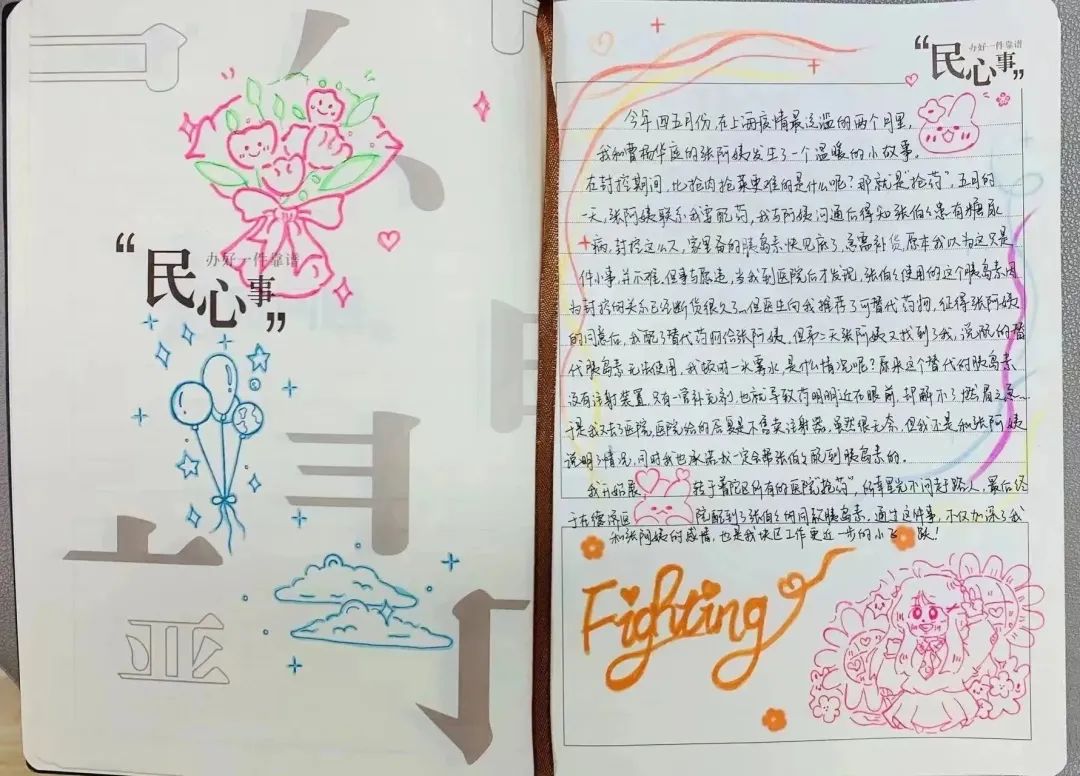 办好一件靠谱
“民心事”
办好一件靠谱
“民心事”
今年四五月份,在上海疫情最泛滥的两个月里,
我和曹杨华庭的张阿姨发生了一个温暖的小故事。
在封控期间,比抢肉抢菜更难的是什么呢?那就是“抢药”,五月的
一天,张阿姨联系我需配药,我与阿姨沟通后得知张伯伯患有糖尿
病,封控这么久,家里备的胰岛素快见底了,急需补货,原本我以为这只是
件小事,并不难,但事与愿违,当我到医院后才发现,张伯伯使用的这个胰岛素因
为封控的关系已经断货很久了,但医生向我推荐了可替代药物,征得张阿姨
的同意后,我配了替代药物给张阿姨,但第二天张阿姨又找到了我,说配的替
代胰岛素无法使用,我顿时一头雾水,是什么情况呢?原来这个替代的胰岛素
没有注射装置,只有一管补充剂,也就导致药明明近在眼前,却解不了燃眉之急…
于是我又去了医院,医院给的答复是不售卖注射器,虽然很无奈,但我还是和张阿姨
说明了情况,同时我也承诺我一定会帮张伯伯配到胰岛素的。
我开始辗转于普陀区所有的医院“抢药”,
于在 院配到了张伯伯的同款胰岛素,通过这件事,不仅加深了我
和张阿姨的感情,也是我块区工作更近一步的小
Fighting